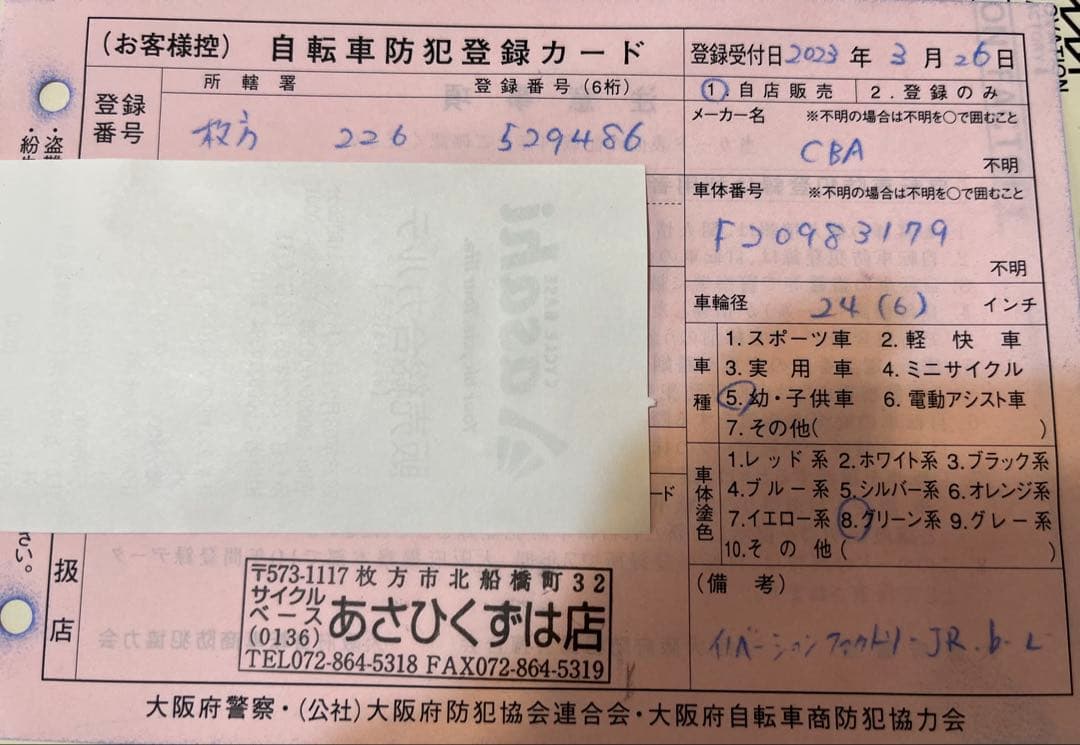 (お客様控) 自転車防犯登録カード
登録受付日 2023年 3月 26日
所轄署 登録番号(6桁)
登録番号
枚方 226 529486
1.自店販売 2.登録のみ
メーカー名 ※不明の場合は不明を○で囲むこと
CBA
不明
車体番号 ※不明の場合は不明を○で囲むこと
不明
車輪径 24(6) インチ
車種
1.スポーツ車 2.軽快車
3.実用車 4.ミニサイクル
5.幼・子供車 6.電動アシスト車
7.その他( )
車体塗色
1.レッド系 2.ホワイト系 3.ブラック系
4.ブルー系 5.シルバー系 6.オレンジ系
7.イエロー系 8.グリーン系 9.グレー系
10.その他( )
(備考)
扱店
〒573-1117 枚方市北船橋町32
サイクルベース あさひくずは店
(0136)
TEL072-864-5318 FAX072-864-5319
大阪府警察・(公社)大阪府防犯協会連合会・大阪府自転車商防犯協力会